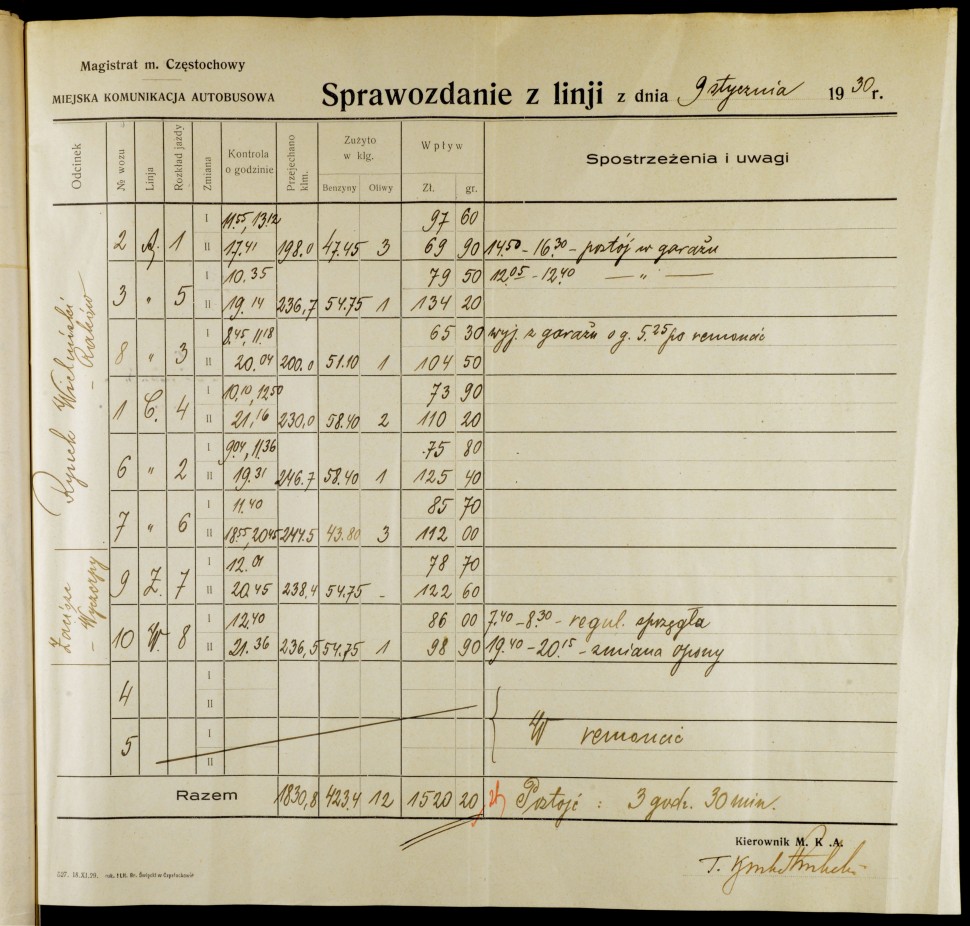 Magistrat m. Częstochowy
MIEJSKA KOMUNIKACJA AUTOBUSOWA
Sprawozdanie z linji z dnia 9 stycznia 1930 r.
Odcinek № wozu Linja Rozkład jazdy Zmiana Kontrola o godzinie Przejechano klm. Zużyto w klg. Benzyny Oliwy Wpływ Zł. gr. Spostrzeżenia i uwagi
Rynek Wieluński - Raków
I 11.55, 13.12 97 60
2 A 1 II 17.41 198.0 47.45 3 69 90 14.50 - 16.30 - postój w garażu
I 10.35 79 50 12.05 - 12.40 — " —
3 " 5 II 19.14 236,7 54.75 1 134 20
I 8.45, 11.18 65 30 wyj. z garażu o g. 5.25 po remoncie
8 " 3 II 20.04 200.0 51.10 1 104 50
I 10.10, 12.50 73 90
1 C. 4 II 21.16 230,0 58.40 2 110 20
I 9.04, 11.36 75 80
6 " 2 II 19.31 246.7 58.40 1 125 40
I 11.40 85 70
7 " 6 II 18.55, 20.45 244.5 43.80 3 112 00
Zacisze - Wyczerpy
I 12.01 78 70
9 Z. 7 II 20.45 238,4 54.75 - 122 60
I 12.40 86 00 7.40 - 8.30 - regul. sprzęgła
10 W. 8 II 21.36 236,5 54.75 1 98 90 19.40 - 20.15 - zmiana opony
4 I
II
W remoncie
5 I
II
Razem 1830,8 423,4 12 1520 20 Postoje : 3 godz. 30 min.
Kierownik M. K. A.
527. 18.XI.29.